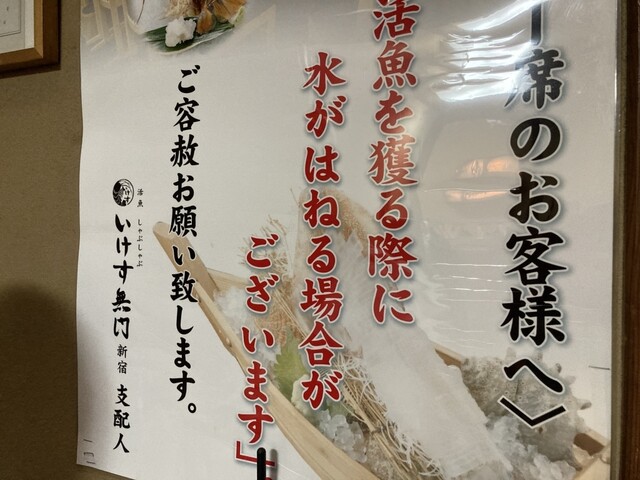 ー席のお客様へ〉
活魚を獲る際に
水がはねる場合が
ございます」
ご容赦お願い致します。
活魚 しゃぶしゃぶ
いけす無門 新宿 支配人